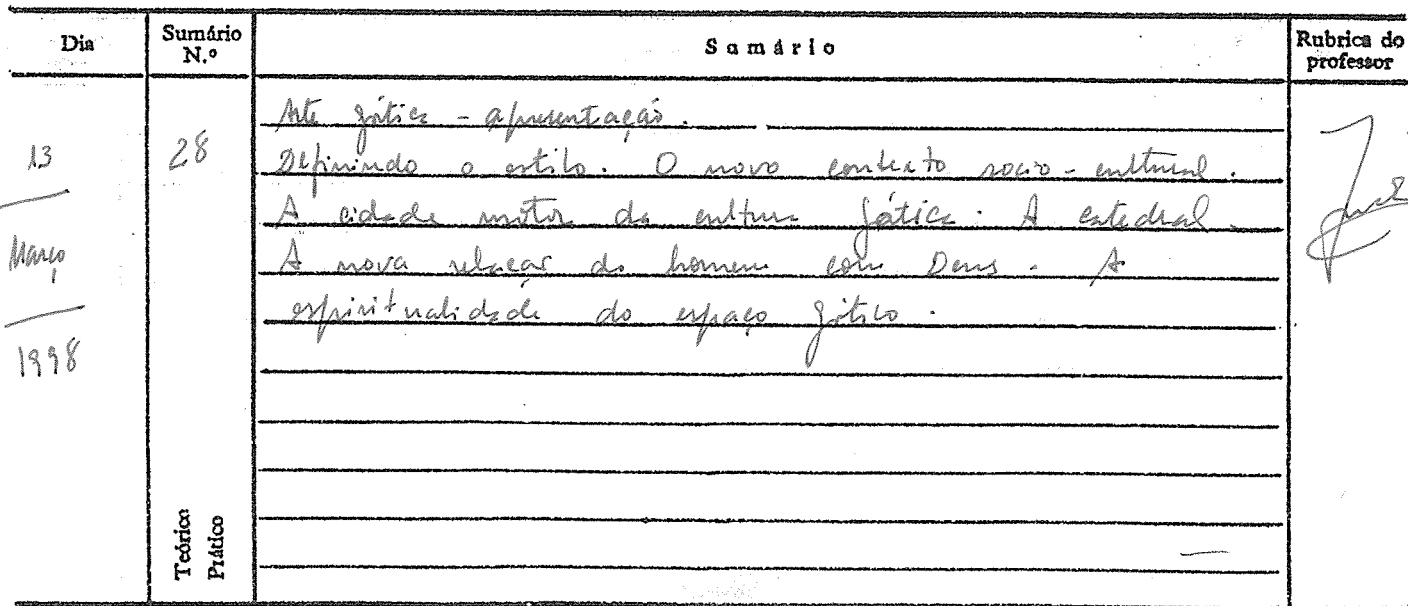 Dia
Sumário N.º
Sumário
Rubrica do professor
13
Março
1998
28
Arte gótica - apresentação.
Definindo o estilo. O novo contexto socio-cultural.
A cidade motor da cultura gótica. A catedral.
A nova relação do homem com Deus. A
espiritualidade do espaço gótico.
Teórico
Prático